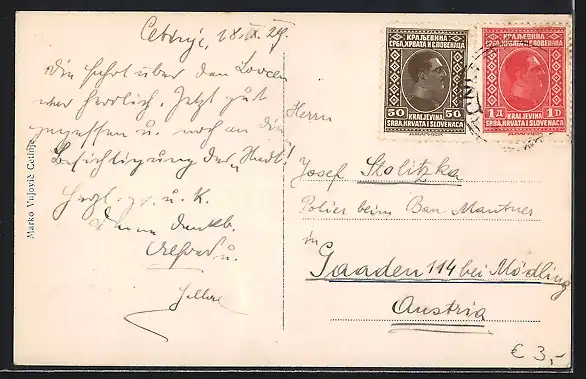 Cetinje, 18.IX.29.
Die Fahrt über den Lovcen
war herrlich. Jetzt gut
gegessen u. noch an die
Besichtigung der Stadt!
Herzl. Gr. u. K.
dankb.
u.
Marko Vujović Cetinje
КРАЉЕВИНА
СРБА, ХРВАТА И СЛОВЕНАЦА
50 50
KRALJEVINA
SRBA, HRVATA I SLOVENACA
КРАЉЕВИНА
СРБА, ХРВАТА И СЛОВЕНАЦА
1 Д 1 D
KRALJEVINA
SRBA, HRVATA I SLOVENACA
Herrn
Josef Stolitzka
Polier beim Bau Mautner
in
Gaaden 114 bei Mödling
Austria
€ 3,-